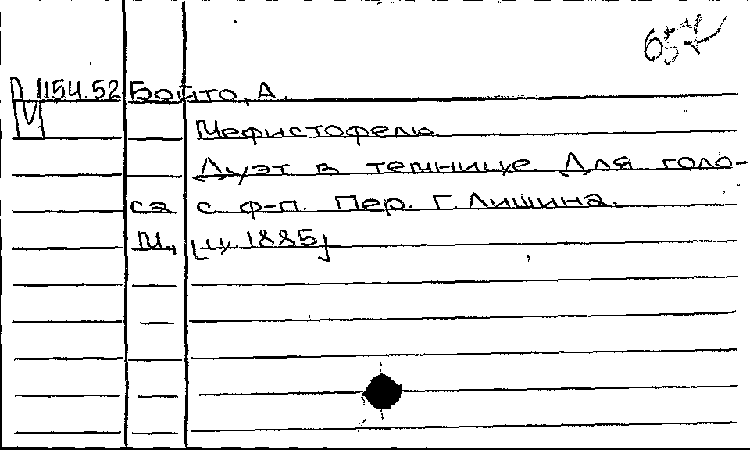 657
М 154.52 Бойто, А.
Мефистофель
Дуэт в темнице Для голо-
са с ф-п. Пер. Г. Лишина.
М, [ц. 1885]